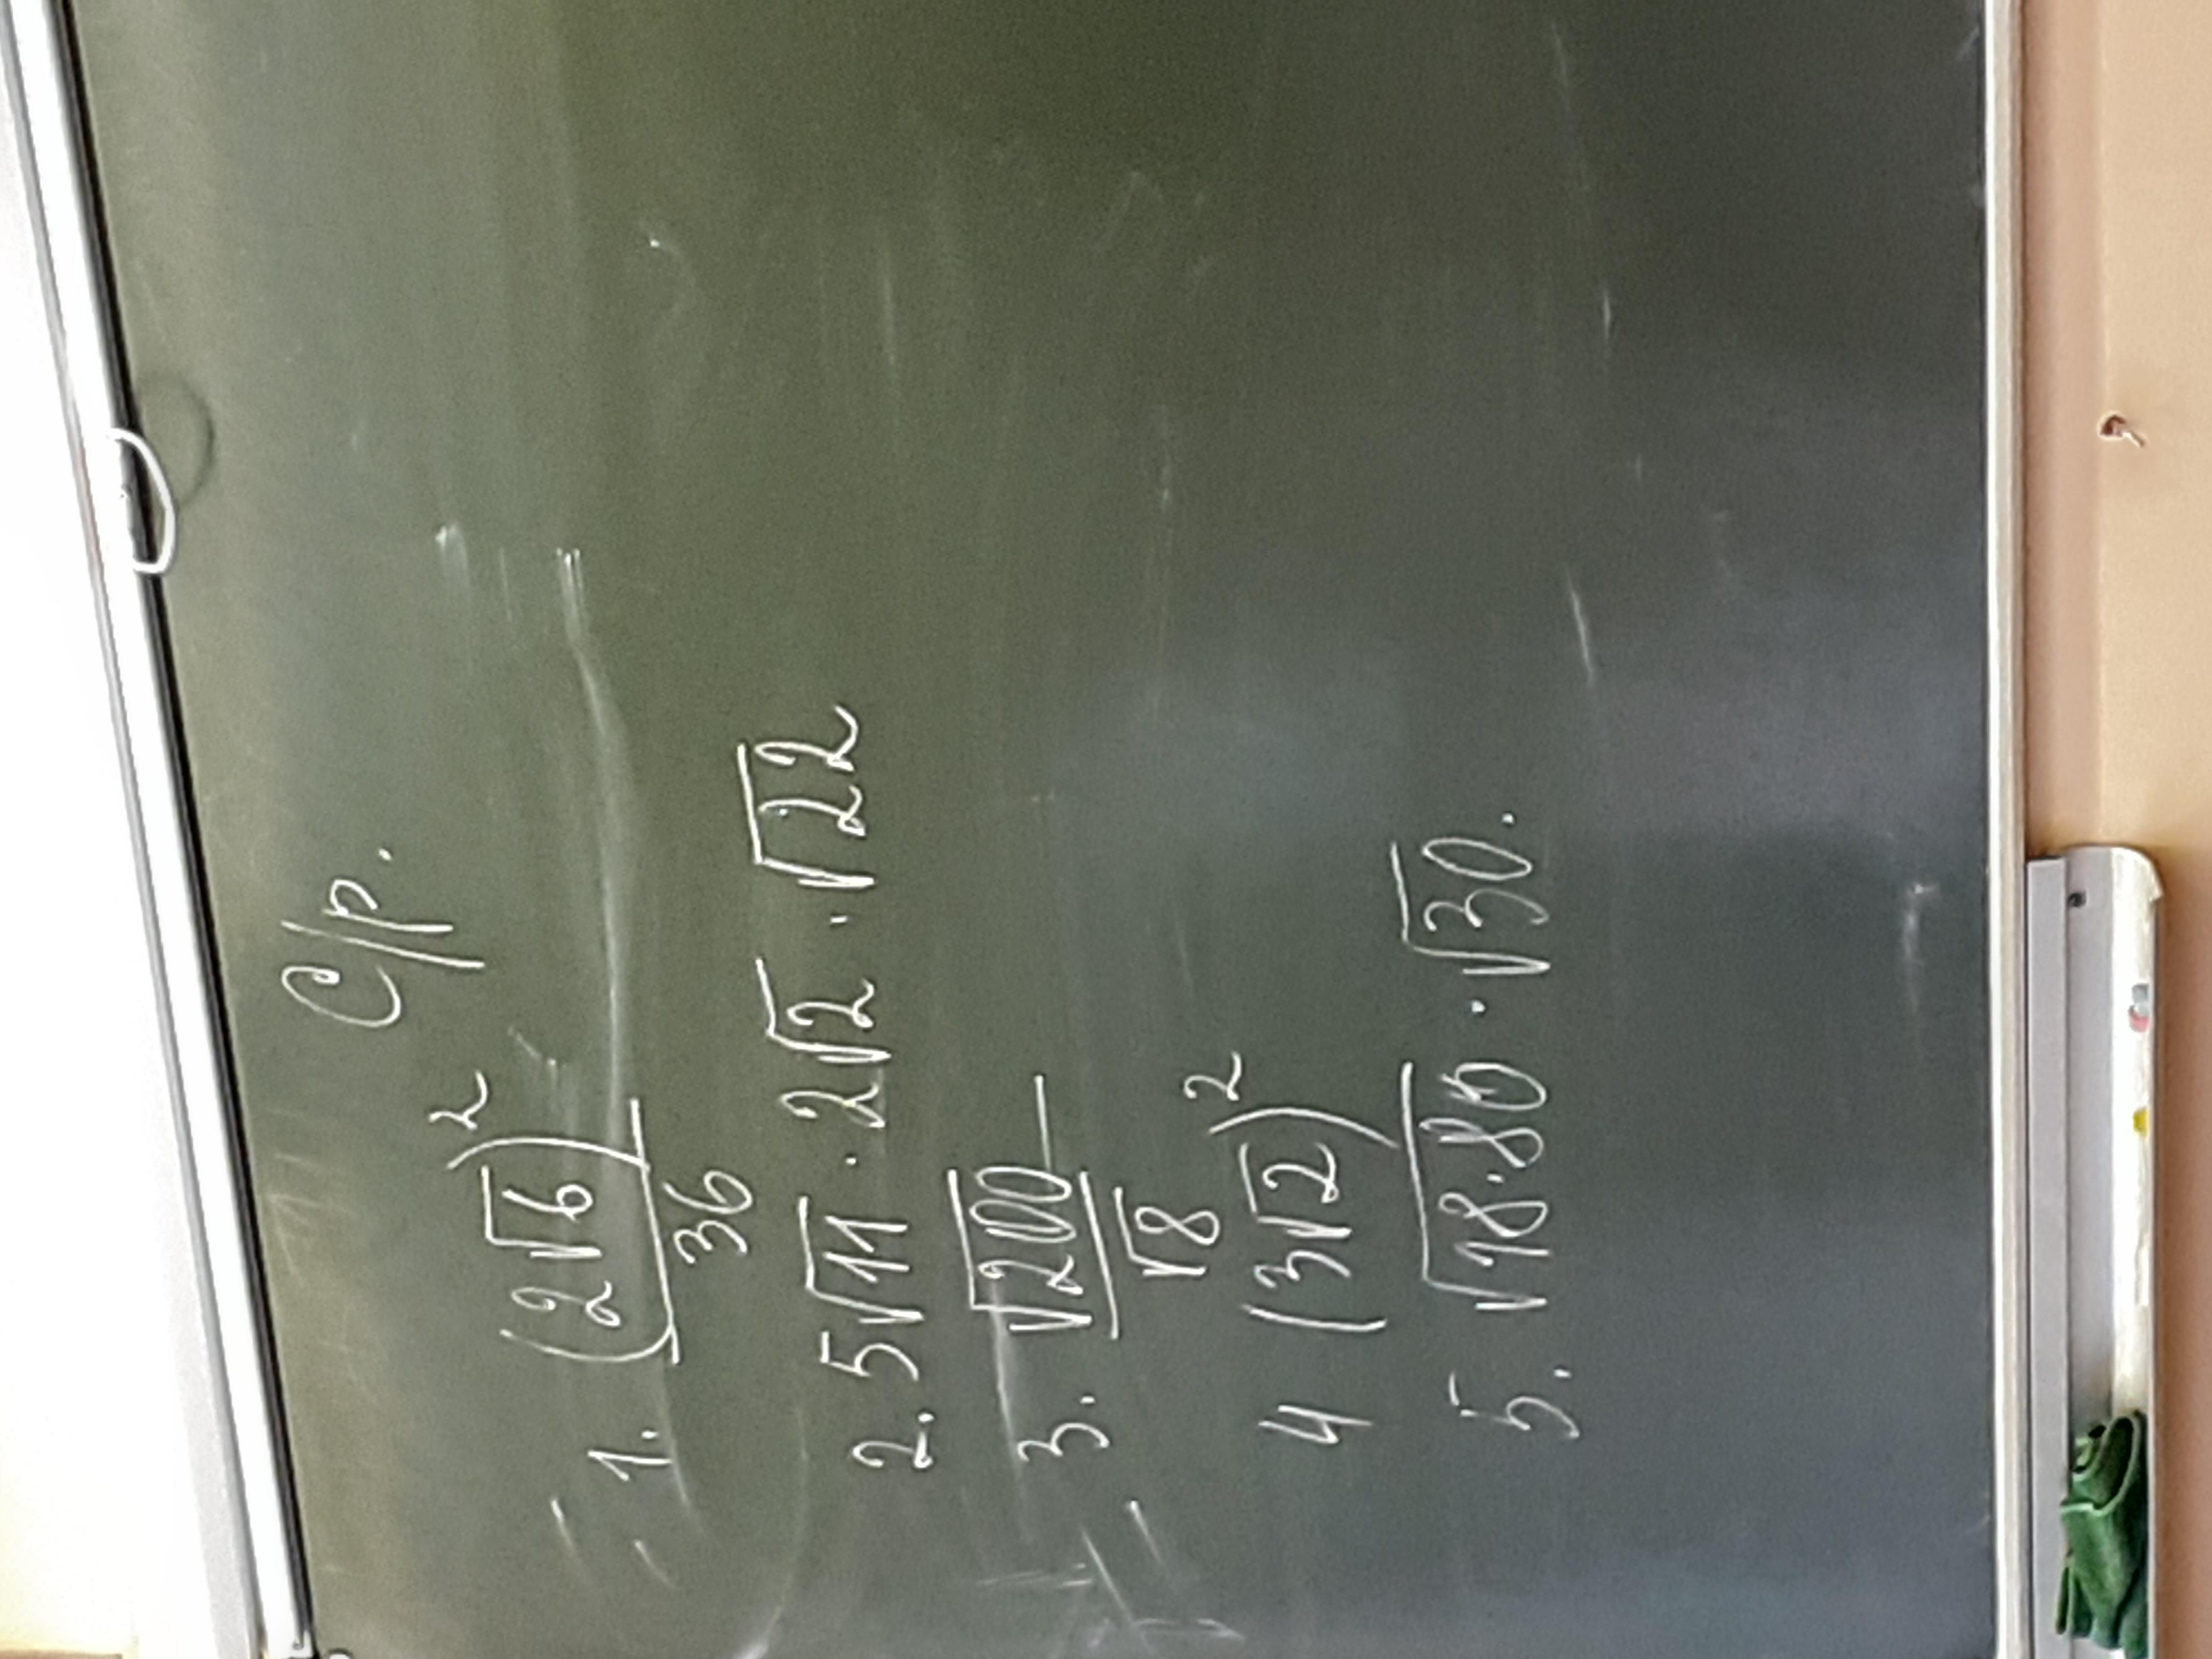 С/р.
1. (2√6)² / 36
2. 5√11 · 2√2 · √22
3. √200 / √8
4 (3√2)²
5. √18·80 · √30.